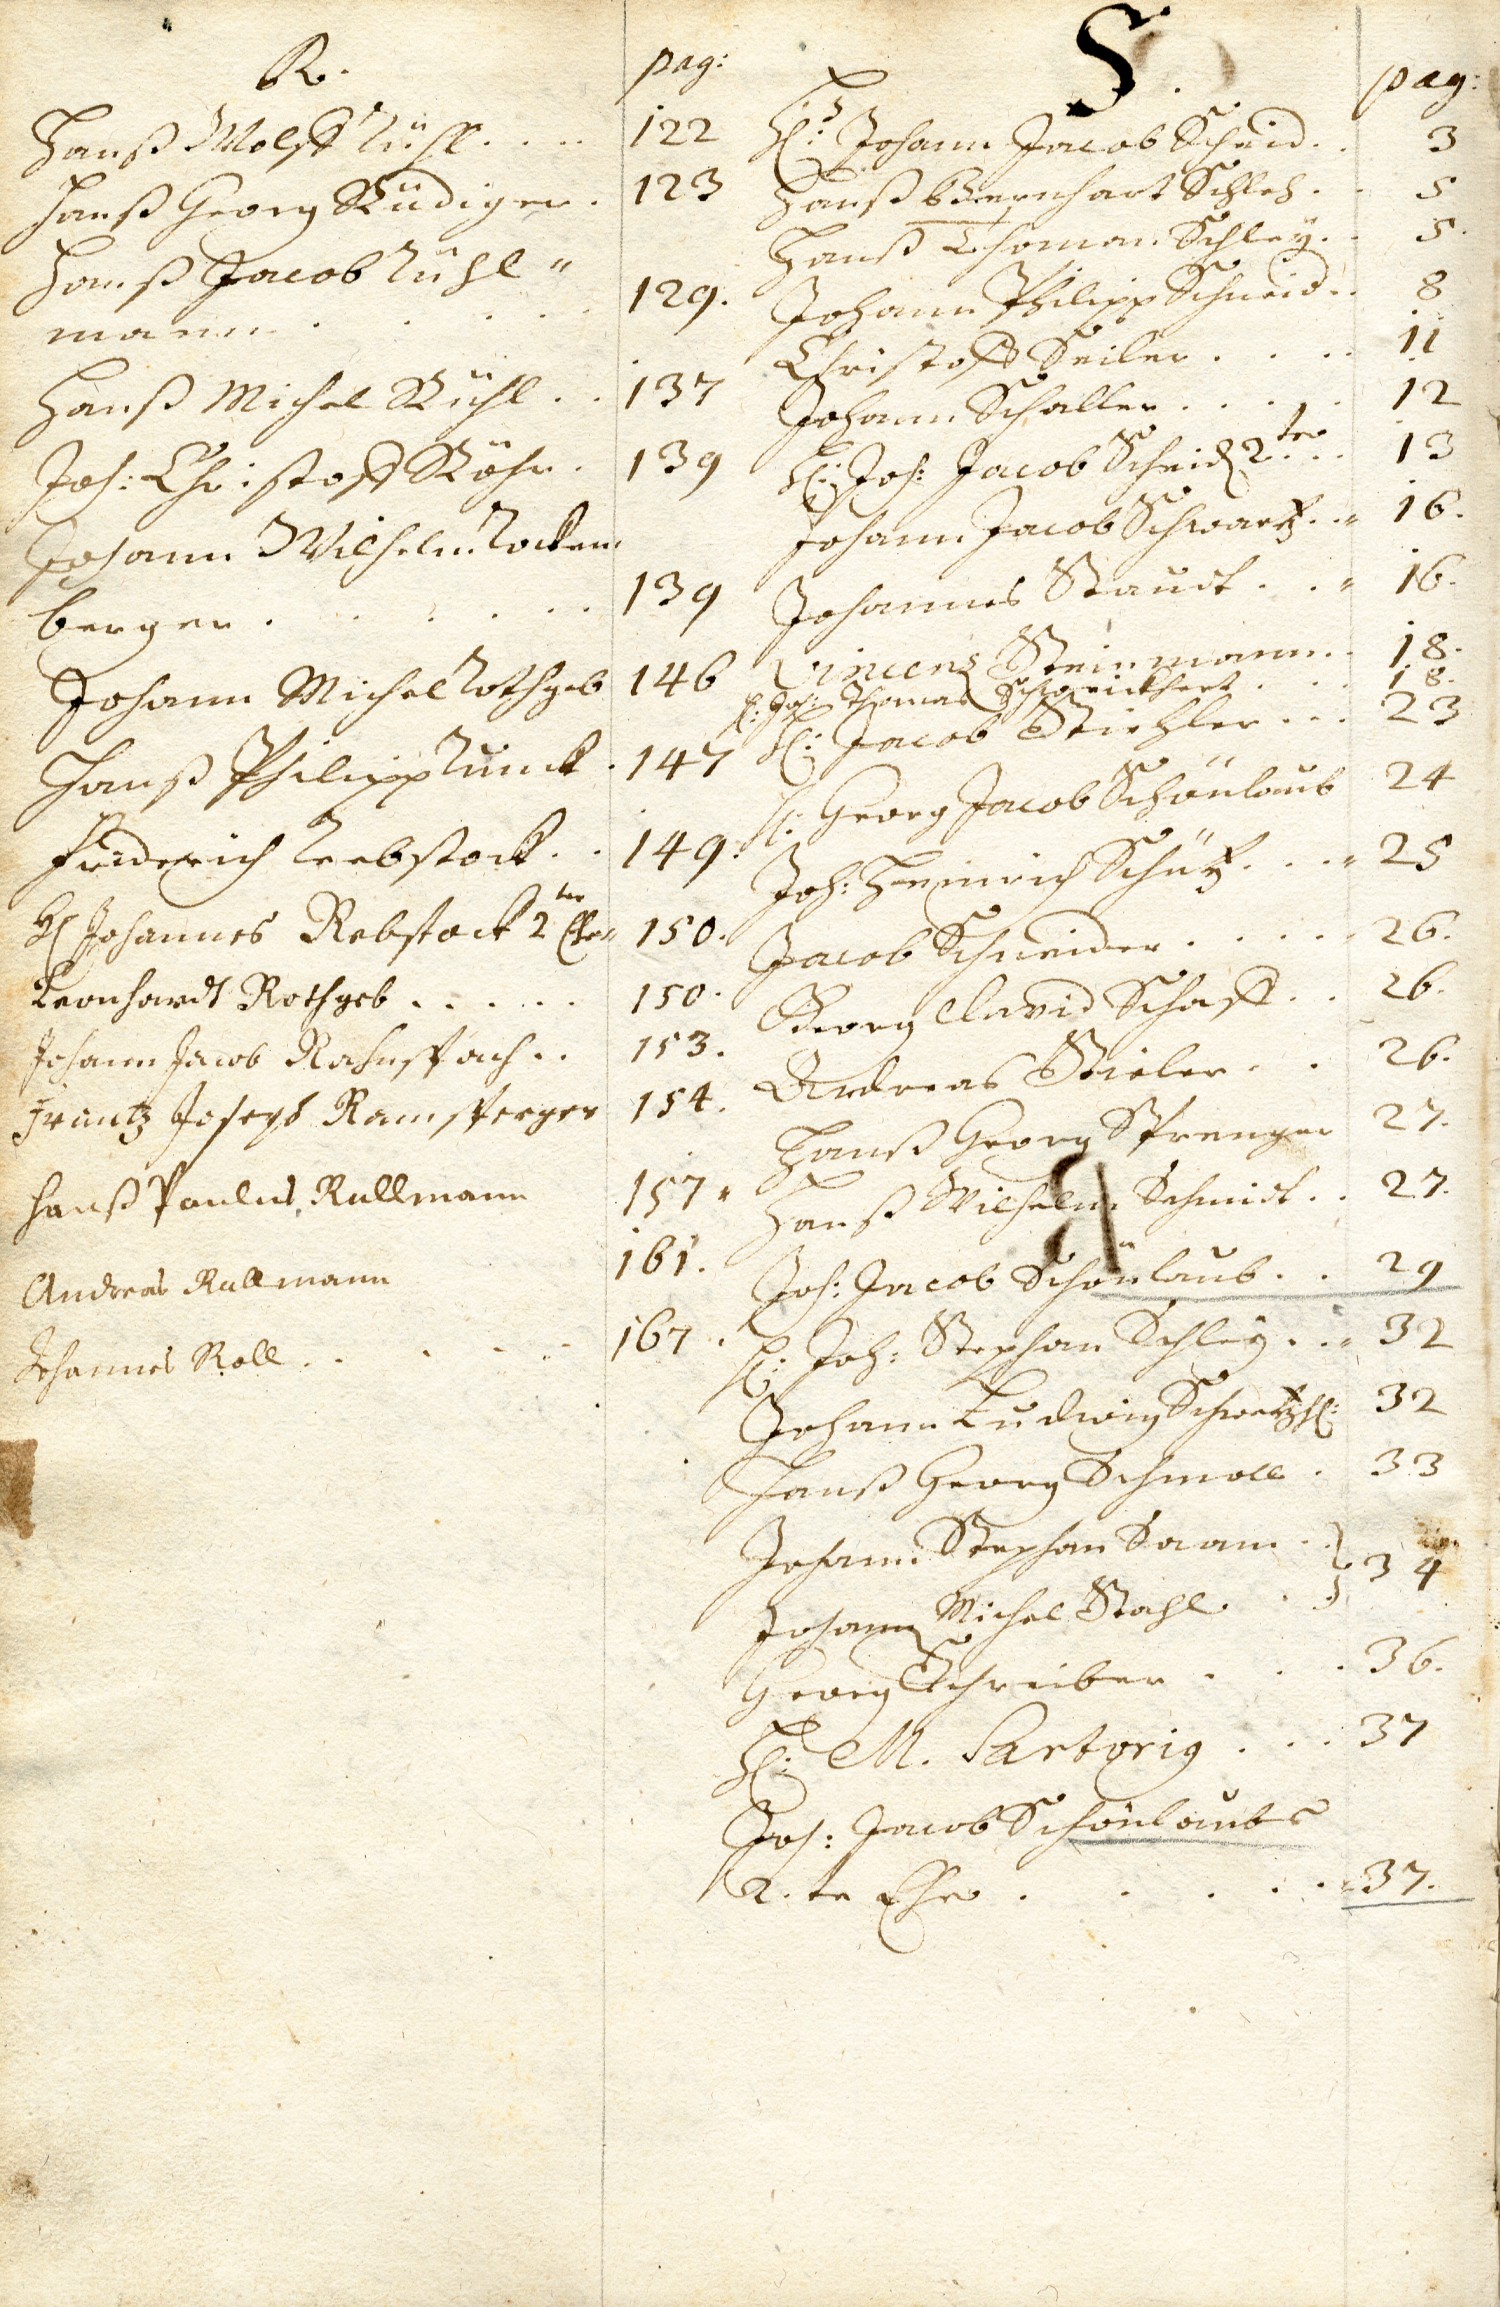 R.
pag:
Hanß Wolff Rühl .... 122
Hanß Georg Rüdiger . 123
Hanß Jacob Rühl"
mann ..... 129.
Hanß Michel Rühl .. 137
Joh: Christoff Röhr . 139
Johann Wilhelm Rocken
berger ...... 139
Johann Michel Rothgeb 146
Hanß Philipp Runck . 147
Friderich Rebstock .. 149.
H Johannes Rebstock 2 ter Ehe 150.
Leonhardt Rothgeb ..... 150.
Johann Jacob Rahnspach .. 153.
Frantz Joseph Ramsperger 154.
Hanß Paulus Rullmann 157"
Andreas Rullmann 161.
Johannes Roll ..... 167.
S.
pag:
H: Johann Jacob Scheid .. 3
Hanß Bernhart Schley .. 5
Hanß Thoman Schley .. 5.
Johann Philipp Schneid .. 8
Christoff Seiler .... 11
Johann Schaller ..... 12
H: Joh: Jacob Scheid 2 ter ... 13
Johann Jacob Schwartz .. 16.
Johannes Staudt ... 16.
Vincens Steinmann .. 18.
H: Joh: Thomas Schweickhert ... 18.
H: Jacob Stiehler ... 23
H: Georg Jacob Schönlaub 24
Joh: Heinrich Schütz .... 25
Jacob Schneider ..... 26.
Georg David Schaff .. 26.
Andreas Stieler .. 26.
Hanß Georg Sprenger 27.
Hanß Wilhelm Schmidt .. 27.
Joh: Jacob Schönlaub .. 29
H: Joh: Stephan Schley ... 32
Johann Ludwig Schwartz H: 32
Hanß Georg Schmoll . 33
Johann Stephan Saam .. }
Johann Michel Stahl . } 34
Georg Schreiber ... 36.
H: M. Sartorig ... 37
Joh: Jacob Schönlaubs
2. te Ehe ..... 37.